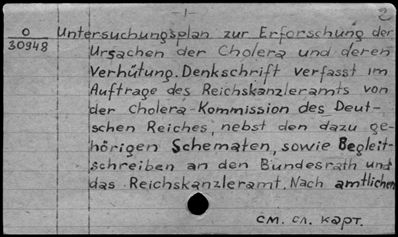 -1- 2
O
30948
Untersuchungsplan zur Erforschung der
Ursachen der Cholera und deren
Verhütung. Denkschrift verfasst im
Auftrage des Reichskanzleramts von
der Cholera-Kommission des Deut-
schen Reiches, nebst den dazu ge-
hörigen Schematen, sowie Begleit-
schreiben an den Bundesrath und
das Reichskanzleramt. Nach amtlichen
см. сл. карт.